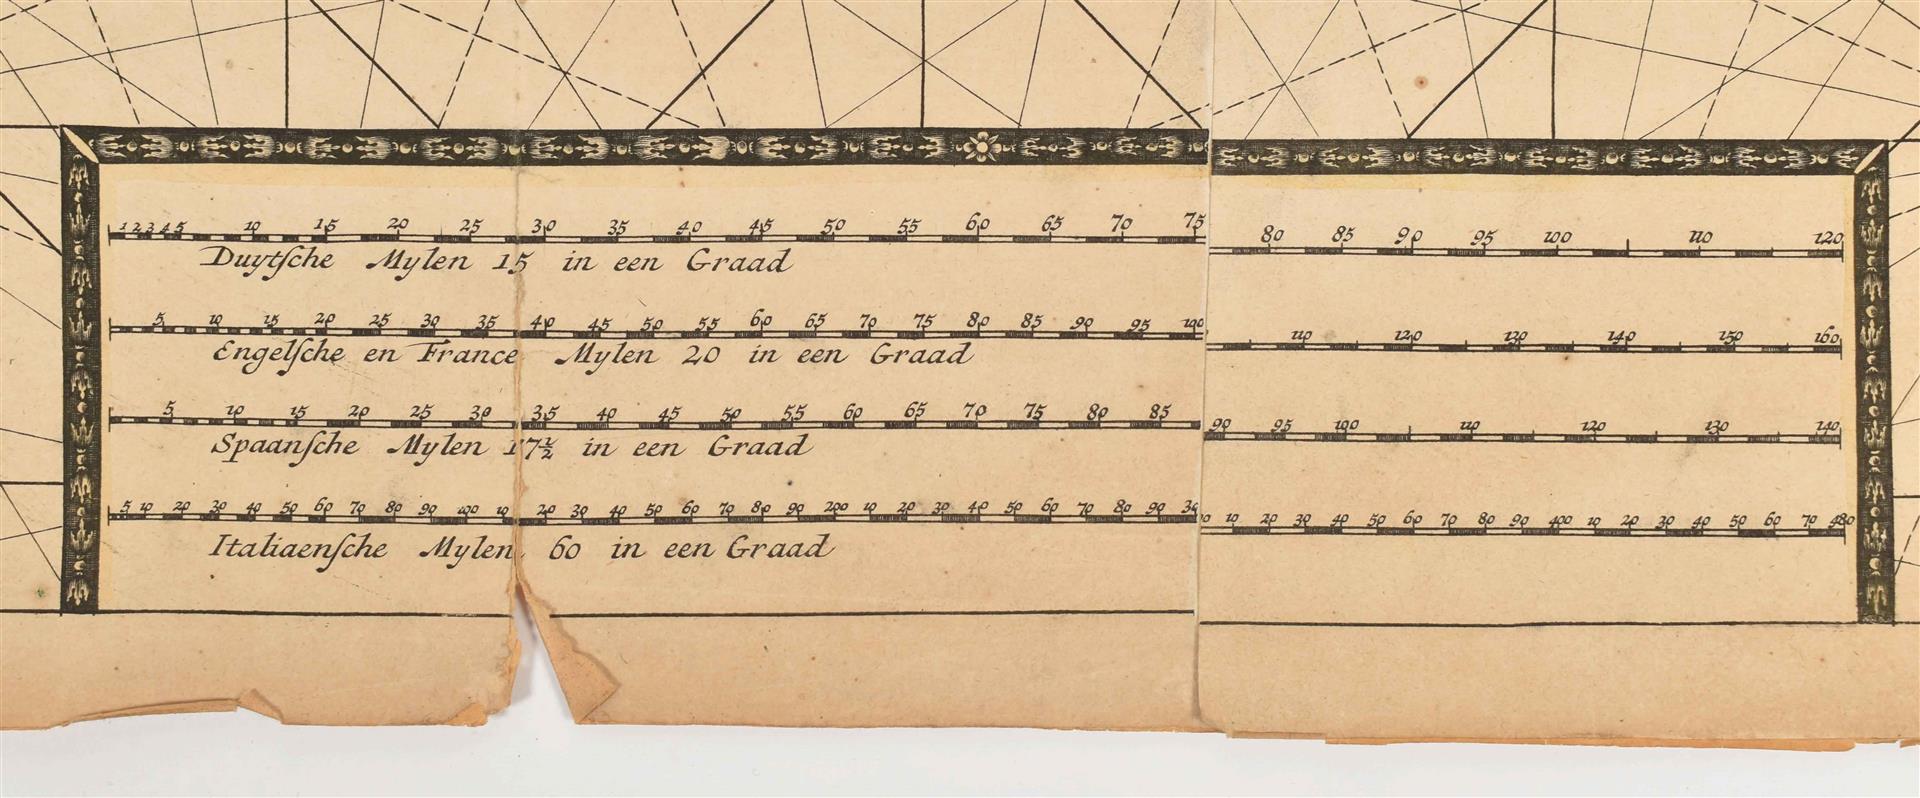 1 2 3 4 5 10 15 20 25 30 35 40 45 50 55 60 65 70 75 80 85 90 95 100 110 120
Duytſche Mylen 15 in een Graad
5 10 15 20 25 30 35 40 45 50 55 60 65 70 75 80 85 90 95 100 110 120 130 140 150 160
Engelſche en France Mylen 20 in een Graad
5 10 15 20 25 30 35 40 45 50 55 60 65 70 75 80 85 90 95 100 110 120 130 140
Spaanſche Mylen 17½ in een Graad
5 10 20 30 40 50 60 70 80 90 100 10 20 30 40 50 60 70 80 90 200 10 20 30 40 50 60 70 80 90 10 20 30 40 50 60 70 80 90 400 10 20 30 40 50 60 70 480
Italiaenſche Mylen 60 in een Graad